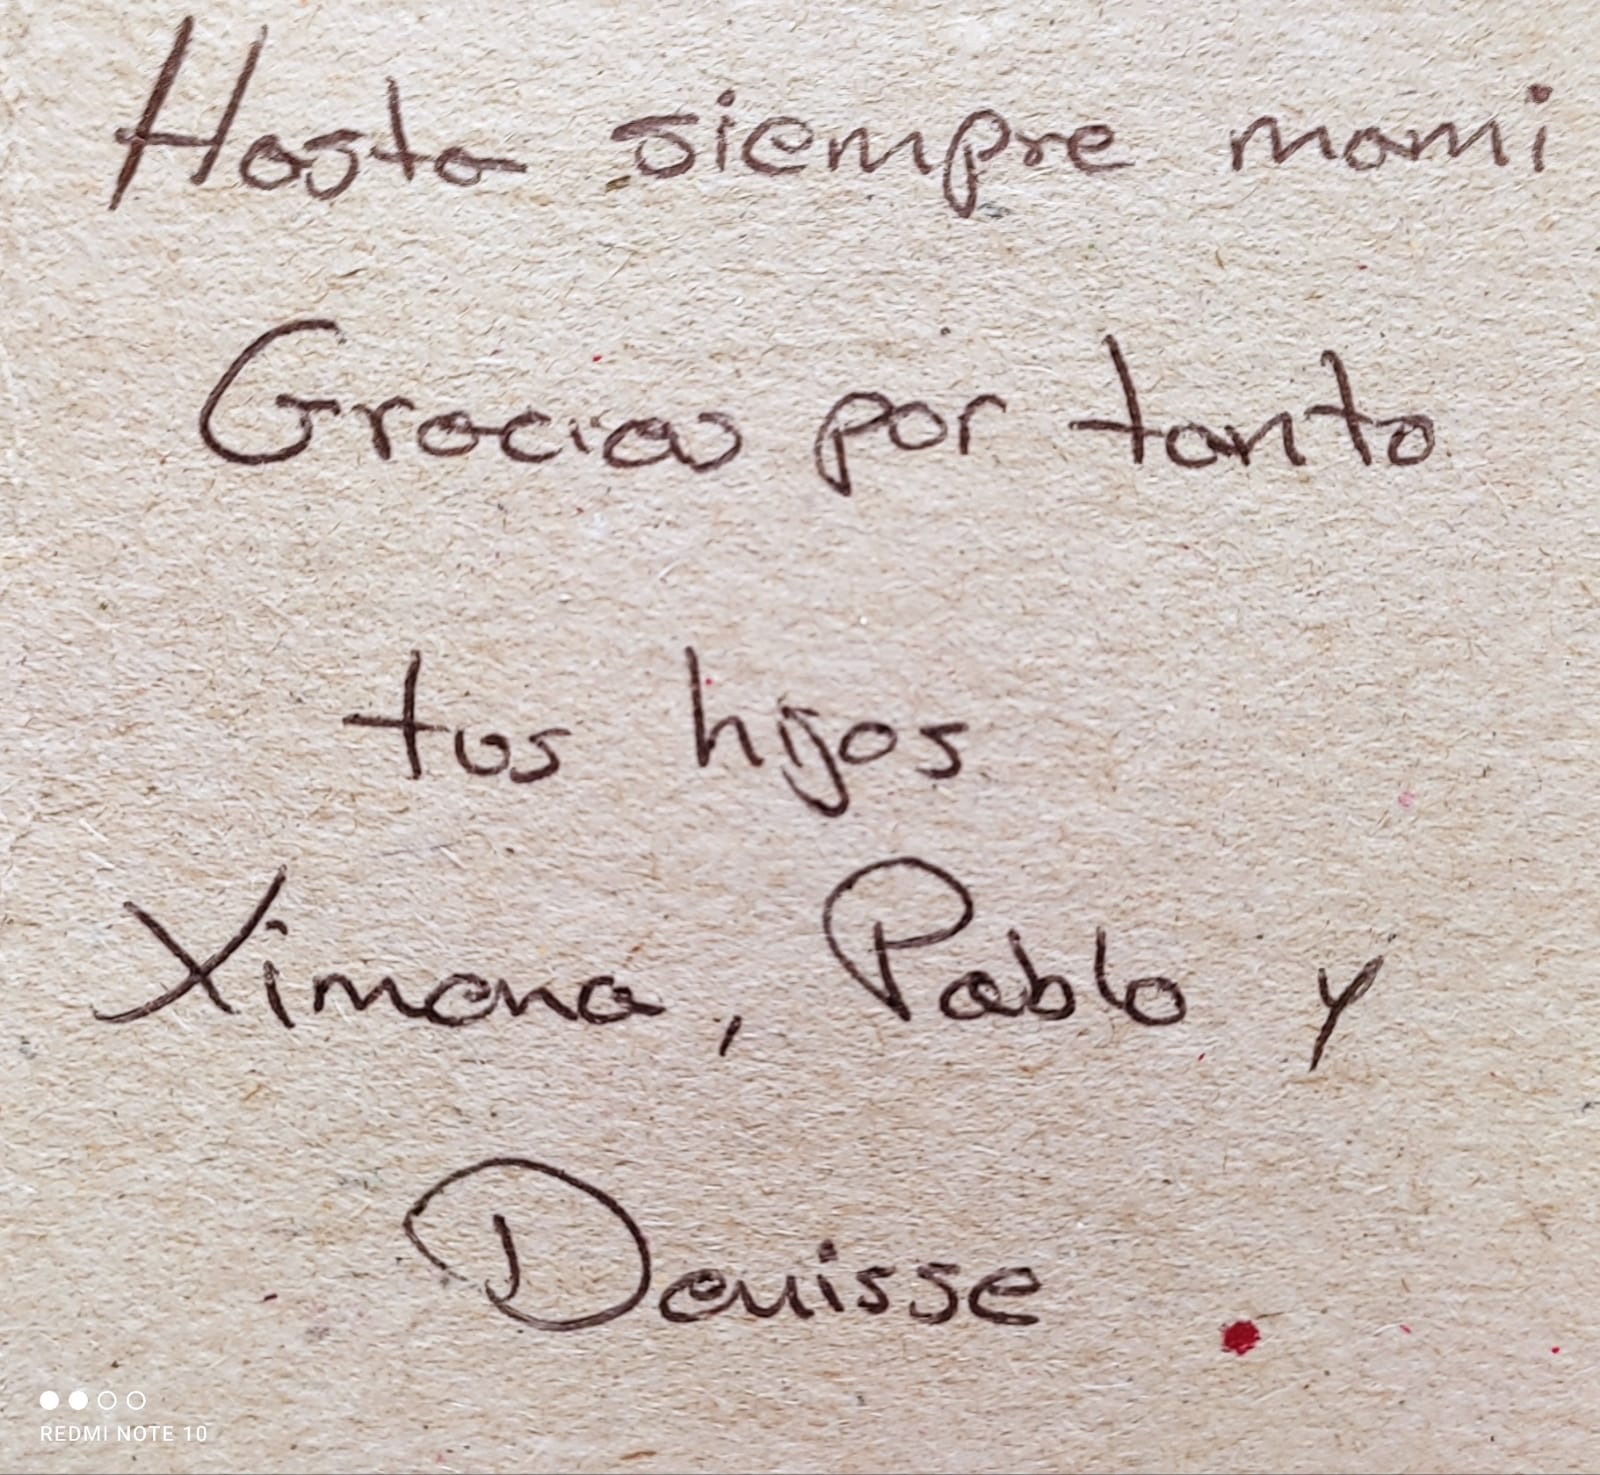 Hasta siempre mami
Gracias por tanto
tus hijos
Ximena, Pablo y
Denisse
REDMI NOTE 10